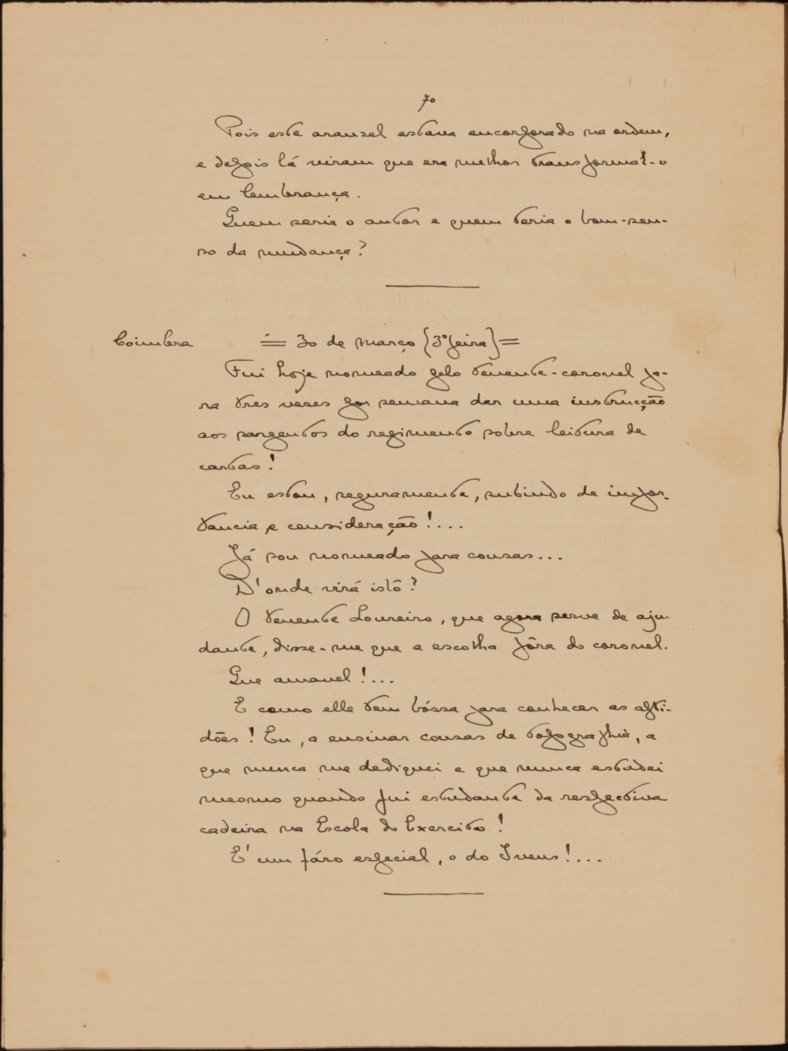 70
Pois este aranzel estava encorporado na ordem,
e depois lá viram que era melhor transformal-o
em lembrança.
Quem seria o autor e quem teria o bom-sen-
so da mudança?
Coimbra = 30 de março (3ª feira) =
Fui hoje nomeado pelo tenente-coronel pa-
ra tres vezes por semana dar uma instrucção
aos sargentos do regimento sobre leitura de
cartas!
Eu estou, seguramente, subindo de impor-
tancia e consideração!...
Já sou nomeado para cousas...
D'onde virá istô?
O tenente Loureiro, que agora serve de aju-
dante, disse-me que a escolha fôra do coronel.
Que amavel!...
E como elle tem bóssa para conhecer as apti-
dões! Eu, a ensinar cousas de topographia, a
que nunca me dediquei e que nunca estudei
mesmo quando fui estudante da respectiva
cadeira na Escola do Exercito!
E' um fáro especial, o do Ivens!...